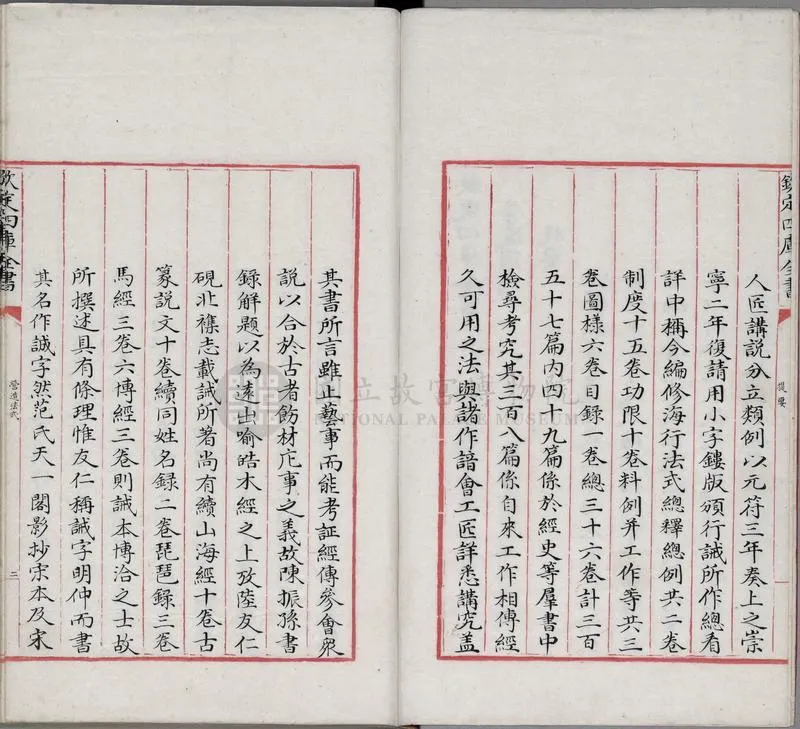 欽定四庫全書
提要
人匠講説分立類例以元符三年奏上之崇
寧二年復請用小字鏤版頒行誡所作總看
詳中稱今編修海行法式總釋總例共二卷
制度十五卷功限十卷料例并工作等共三
卷圖樣六卷目録一卷總三十六卷計三百
五十七篇内四十九篇係於經史等羣書中
檢尋考究其三百八篇係自來工作相傳經
久可用之法與諸作諳會工匠詳悉講究蓋
其書所言雖止藝事而能考証經傳參會衆
説以合於古者飭材庀事之義故陳振孫書
録解題以為遠出喻皓木經之上攷陸友仁
硯北襍志載誡所著尚有續山海經十卷古
篆説文十卷續同姓名録二卷琵琶録三卷
馬經三卷六博經三卷則誡本博洽之士故
所撰述具有條理惟友仁稱誡字明仲而書
其名作誠字然范氏天一閣影抄宋本及宋
欽定四庫全書
營造法式
三
國立故宮博物院
NATIONAL PALACE MUSEUM